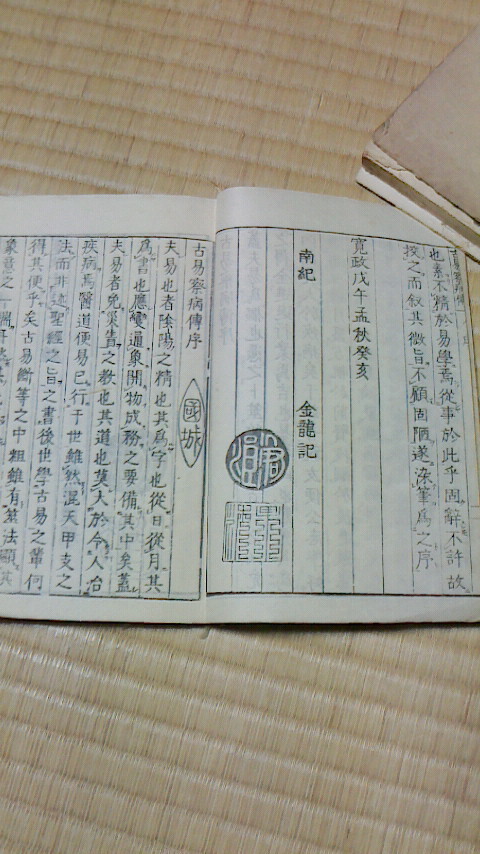 也素不精於易學焉從事於此乎固辭不許故
授之而叙其微旨不顧固陋遂染筆為之序
寛政戊午孟秋癸亥
南紀 金龍記
古易察病傳序
國城
夫易也者陰陽之精也其為字也從日從月其
為書也應變逼象開物成務之要備其中矣蓋
夫易者免災眚之教也其道也莫大於令人治
疾病焉醫道便易已行于世雖然混天甲支之
法而非述聖經之旨之書後世學古易之輩何
得其便乎矣古易斷等之中粗雖有筮法顯其
象意之一端